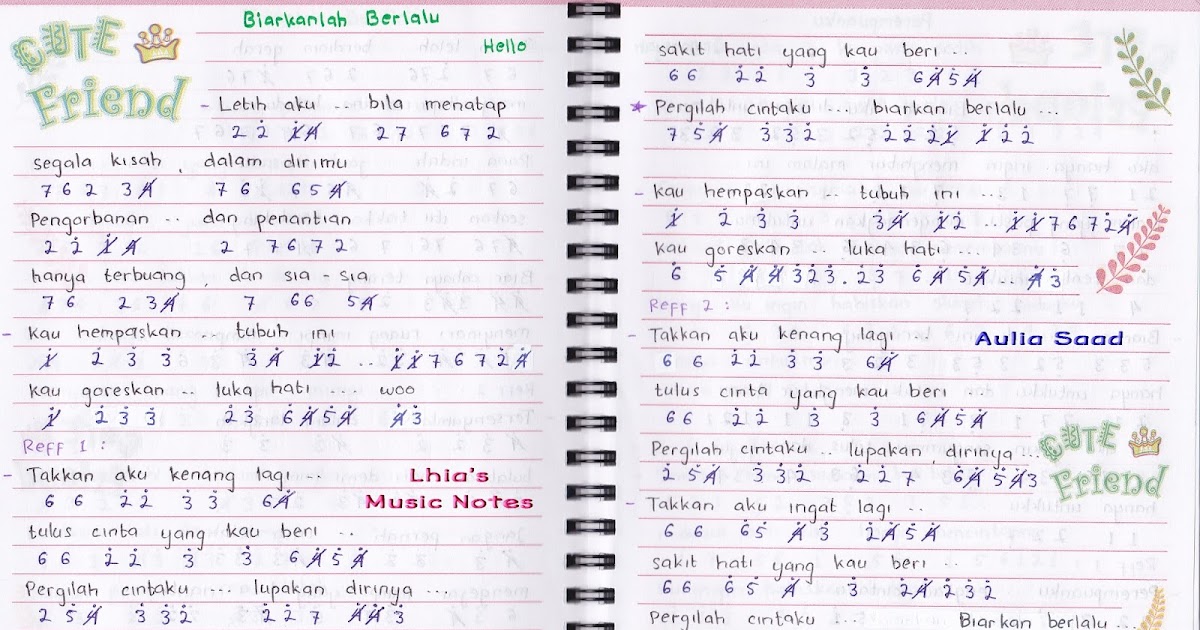 CUTE Friend
Biarkanlah Berlalu
Hello
- Letih aku .. bila menatap
2 2 1 4 2 7 6 7 2
segala kisah, dalam dirimu
7 6 2 3 4 7 6 6 5 4
Pengorbanan .. dan penantian
2 2 1 4 2 7 6 7 2
hanya terbuang, dan sia - sia
7 6 2 3 4 7 6 6 5 4
- kau hempaskan ... tubuh ini
1 2 3 3 3 4 1 2 .. 1 1 7 6 7 2 4
kau goreskan .. luka hati ... woo
1 2 3 3 2 3 6 4 5 4 4 3
Reff 1 :
- Takkan aku kenang lagi ..
6 6 2 2 3 3 6 4
Lhia's
Music Notes
tulus cinta yang kau beri ..
6 6 2 2 3 3 6 4 5 4
Pergilah cintaku ... lupakan dirinya ...
2 5 4 3 3 2 2 2 7 4 4 3
sakit hati yang kau beri ..
6 6 2 2 3 3 6 4 5 4
* Pergilah cintaku ... biarkan berlalu ...
7 5 4 3 3 2 2 2 2 1 1 2 2
- kau hempaskan .. tubuh ini ...
1 2 3 3 3 4 1 2 ... 1 1 7 6 7 2 4
kau goreskan ... luka hati ...
6 5 4 4 3 2 3 . 2 3 6 4 5 4 .. 4 3
Reff 2 :
- Takkan aku kenang lagi
6 6 2 2 3 3 6 4
Aulia Saad
tulus cinta yang kau beri ...
6 6 2 2 3 3 6 4 5 4
Pergilah cintaku .. lupakan dirinya ...
2 5 4 3 3 2 2 2 7 6 4 5 4 3
CUTE Friend
- Takkan aku ingat lagi ..
6 6 6 5 4 3 2 4 5 4
sakit hati yang kau beri ..
6 6 6 5 4 3 2 4 2 3 2
Pergilah cintaku ... Biarkan berlalu ...